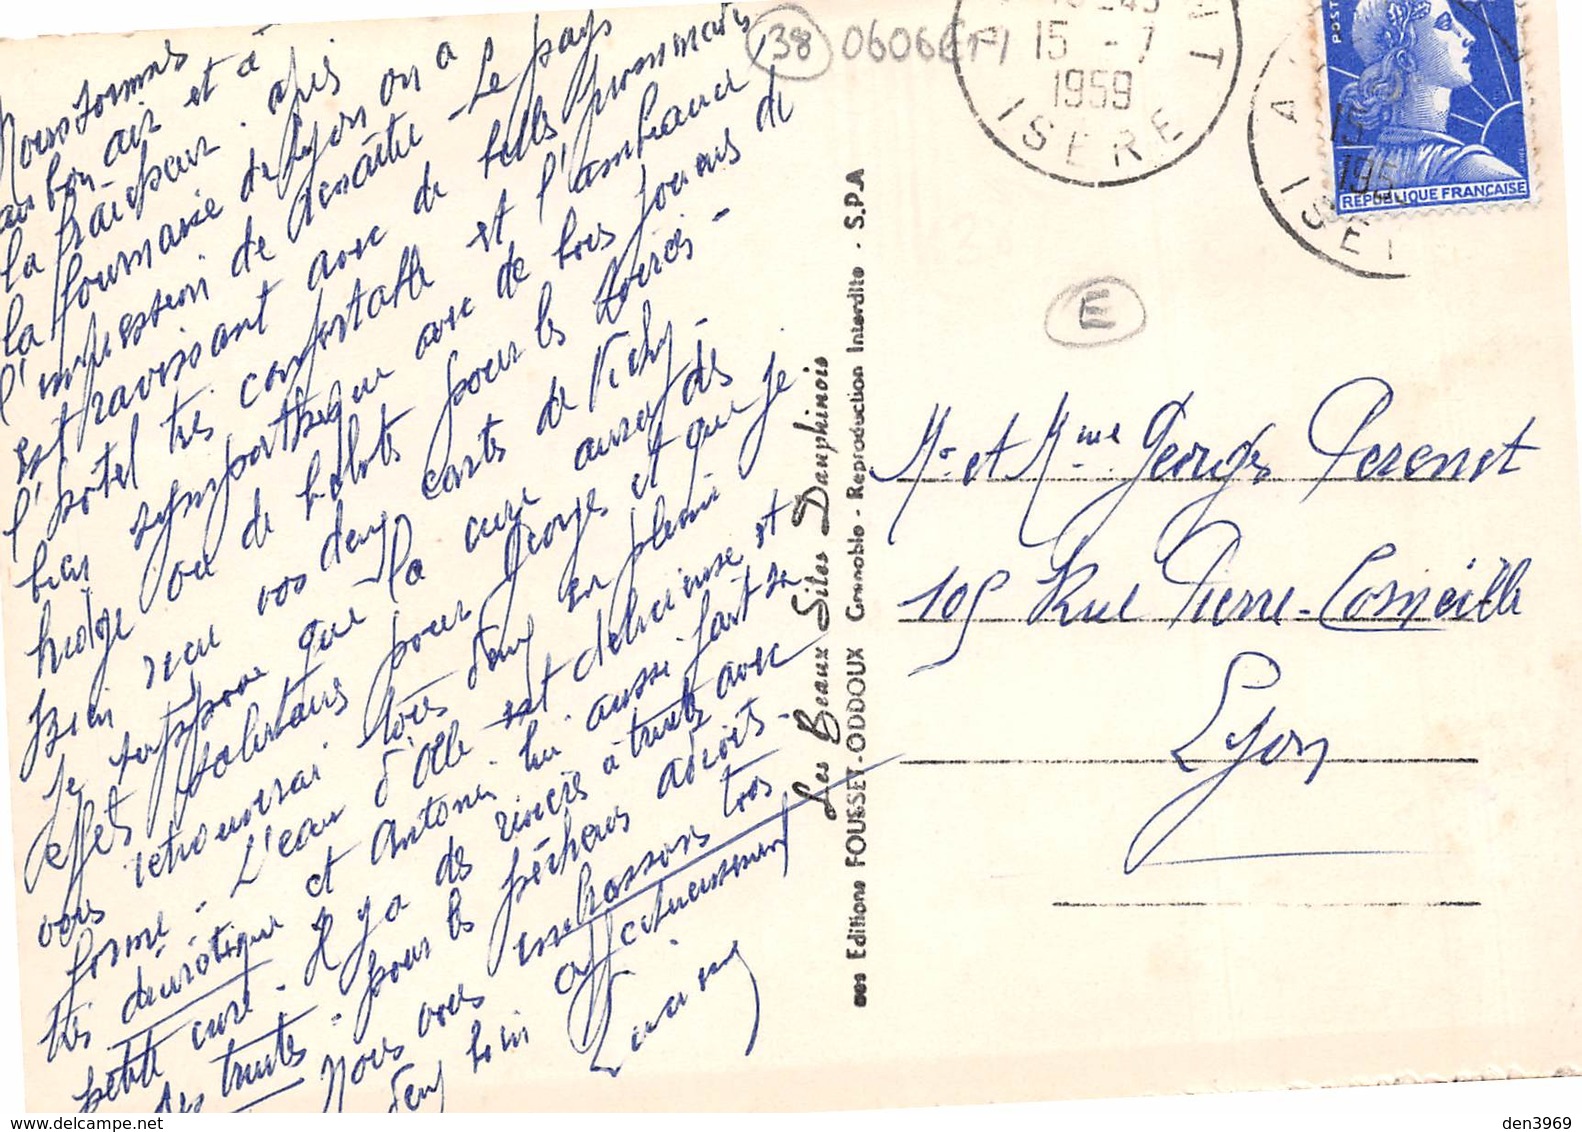 Nous sommes
au bon air et à
la fraîcheur. après
la fournaise de Lyon on a
l'impression de renaître - Le pays
est ravissant avec de belles promenades
l'hôtel très confortable et l'ambiance
bien sympathique avec de bons joueurs de
bridge ou de belote pour les soirées -
Bien reçu vos deux cartes de Vichy -
Je suppose que la cure aura des
effets salutaires pour Georges et que je
vous retrouverai tous deux en pleine
forme - L'eau d'Olle est délicieuse et
très diurétique et Antonin lui aussi fait sa
petite cure - Il y a des rivières à truites avec
des truites - pour les pêcheurs adroits -
Nous vous embrassons tous
deux bien affectueusement
38
15 - 7
1959
ISERE
15
195
ISE
POST
REPUBLIQUE FRANÇAISE
E
Mr et Mme Georges Perenet
105 Rue Pierre-Corneille
Lyon
Les Beaux Sites Dauphinois
Editions FOUSSET-ODDOUX Grenoble - Reproduction Interdite - S.P.A
den3969